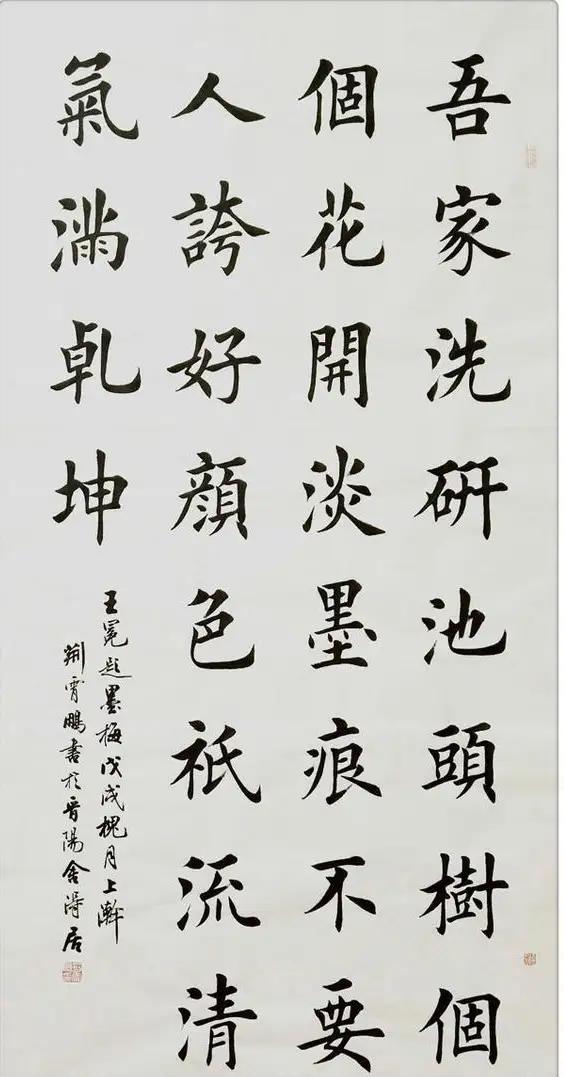 吾家洗硏池頭樹個
個花開淡墨痕不要
人誇好顔色祇流清
氣滿乹坤
王冕题墨梅戊戌槐月上澣
荆霄鵬書於晋陽舍得居